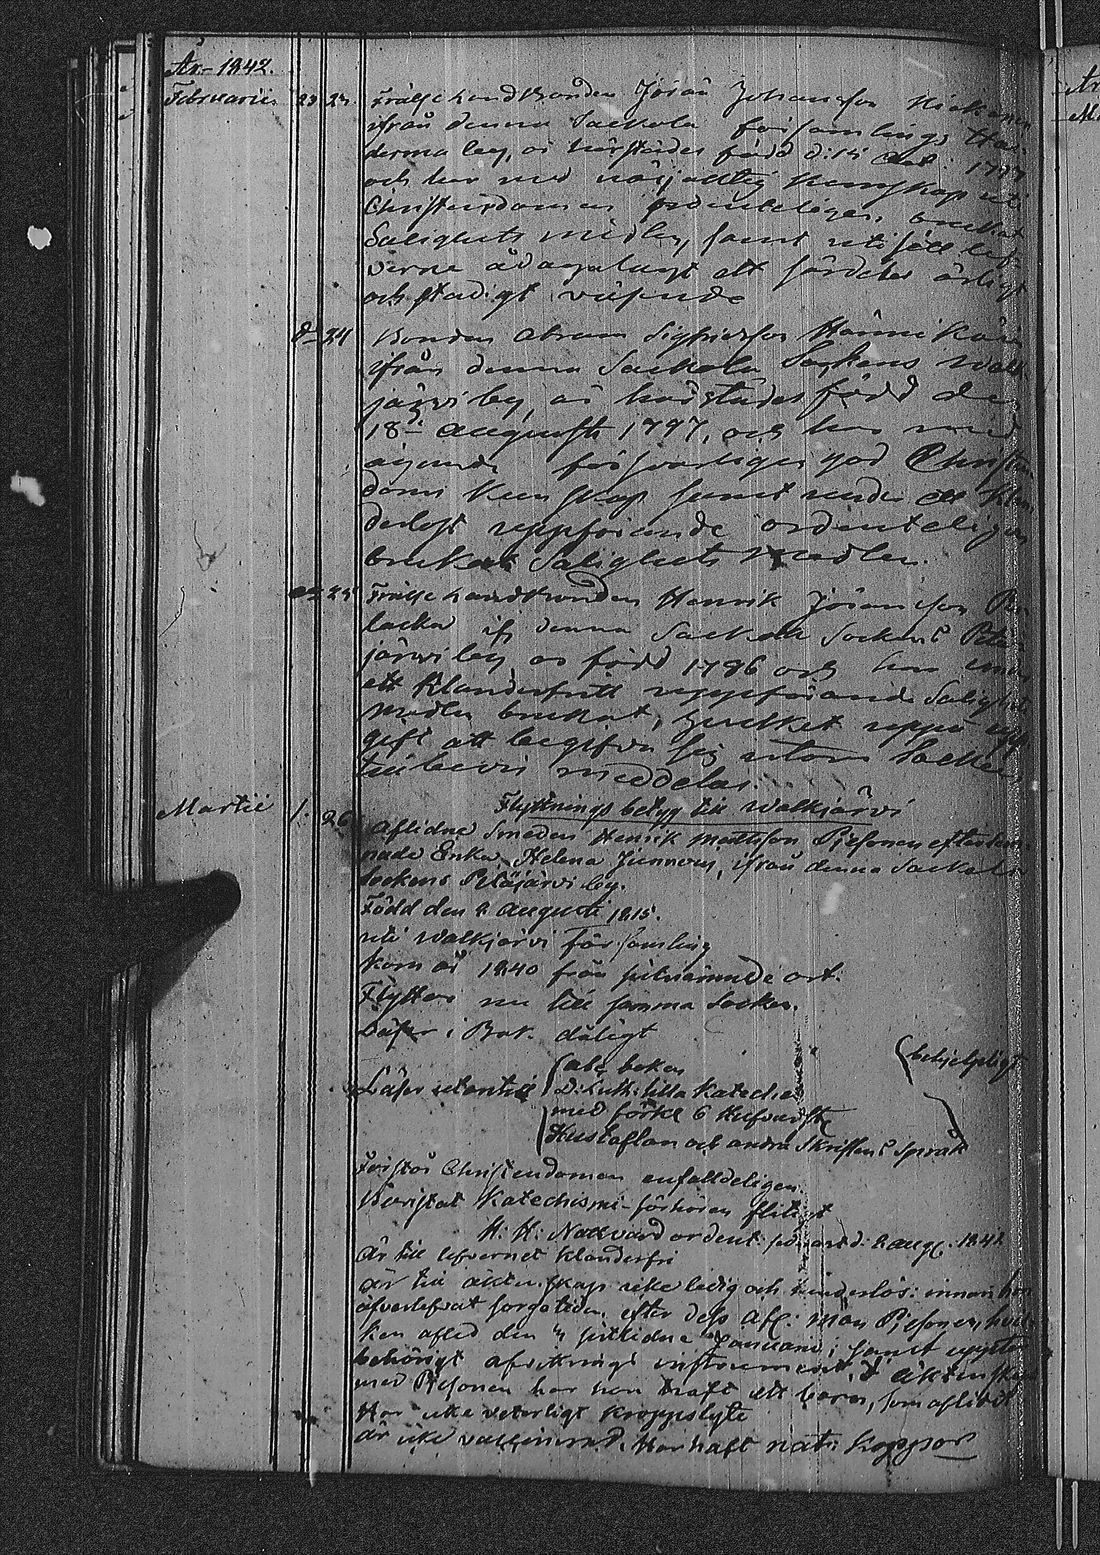 År 1842.
Februarii 23 23 Frälse landtbonden Jöran Johansson
ifrån denna Sackola församlings
by, är härstädes född d: 15 Oct: 1777
och har med nöjaktig kunskap uti
Christendomen ordenteligen brukat
Salighets medlen, samt uti sitt lef-
verne ådagalagt ett särdeles ärligt
och stadigt väsende
d 24 24 Bonden Abram Sigfridsson Hännikäin
ifrån denna Sackola Sockens Walk-
järvi by, är härstädes född den
18de Augusti 1797, och har med
ägande försvarliger god Christen-
doms kunskap samt under ett klan-
derlöst uppförande ordenteligen
brukat Salighets medlen.
25 Frälse landtbonden Henrik Jöransson
ifr denna Sackola Sockens Petä-
järvi by är född 1786 och har under
ett klanderfritt uppförande Salighets
medlen brukat, hvilket uppå upp-
gift att begifva sig utom Socken
till bevis meddelas.
Flyttnings betyg till Walkjärvi
Martii 1. 26 Aflidne Smeden Henrik Mattsson Piesonens efterläm-
nade Enka Helena Jiunnen, ifrån denna Sackola
Sockens Petäjärvi by.
Född den 2 Augusti 1815.
uti Walkjärvi Församling
Kom år 1840 från sistnämnde ort.
Flyttar nu till samma Socken.
Läser i Bok dåligt
Läser utantill
abc boken
D: Luth: lilla Kateches
med förkl 6 Hufvudst
Hustaflan och andra Skriftens Språk
behjelpligt
Förstår Christendomen enfaldeligen
Bevistat Katechismi-förhören flitigt
H: H: Nattvard ordent: sednast d: 2 Aug: 1841
Är till lefvernet klanderfri
är till äktenskap icke ledig och hinderlös: innan hon
öfverlefvat sorgetiden efter dess afl: man Piesonen, hvil-
ken afled den 4 sistledne Januarii, samt uppte
behörigt afvittrings instrument, i äktenskap
med Piesonen har hon haft ett barn, som aflidit
Har icke veterligt kroppslyte
är icke vaccinerad. Har haft nat: koppor